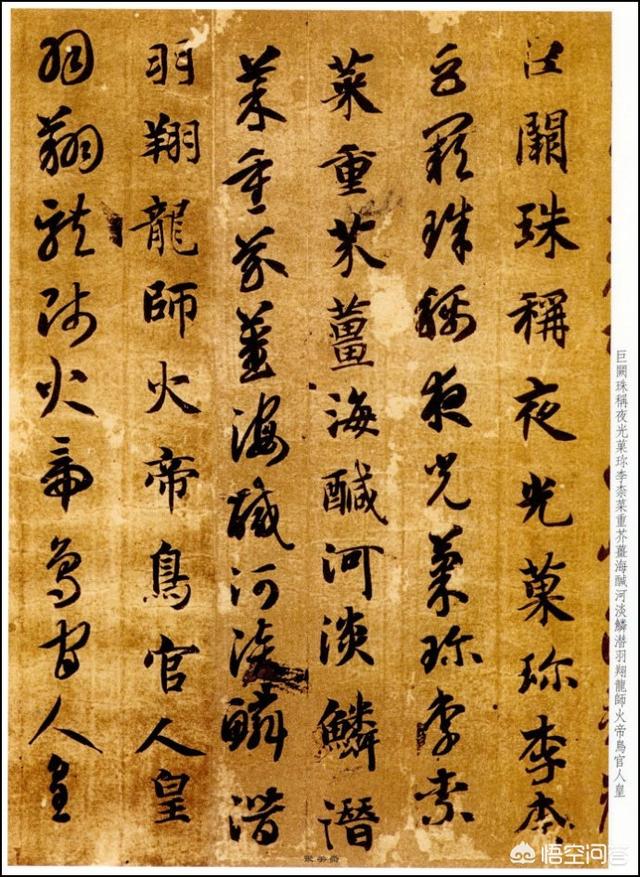 巨闕珠稱夜光菓珎李柰
巨闕珠稱夜光菓珎李柰
菜重芥薑海醎河淡鱗潛
菜重芥薑海醎河淡鱗潛
羽翔龍師火帝鳥官人皇
羽翔龍師火帝鳥官人皇
巨闕珠稱夜光菓珎李柰菜重芥薑海醎河淡鱗潜羽翔龍師火帝鳥官人皇
悟空问答